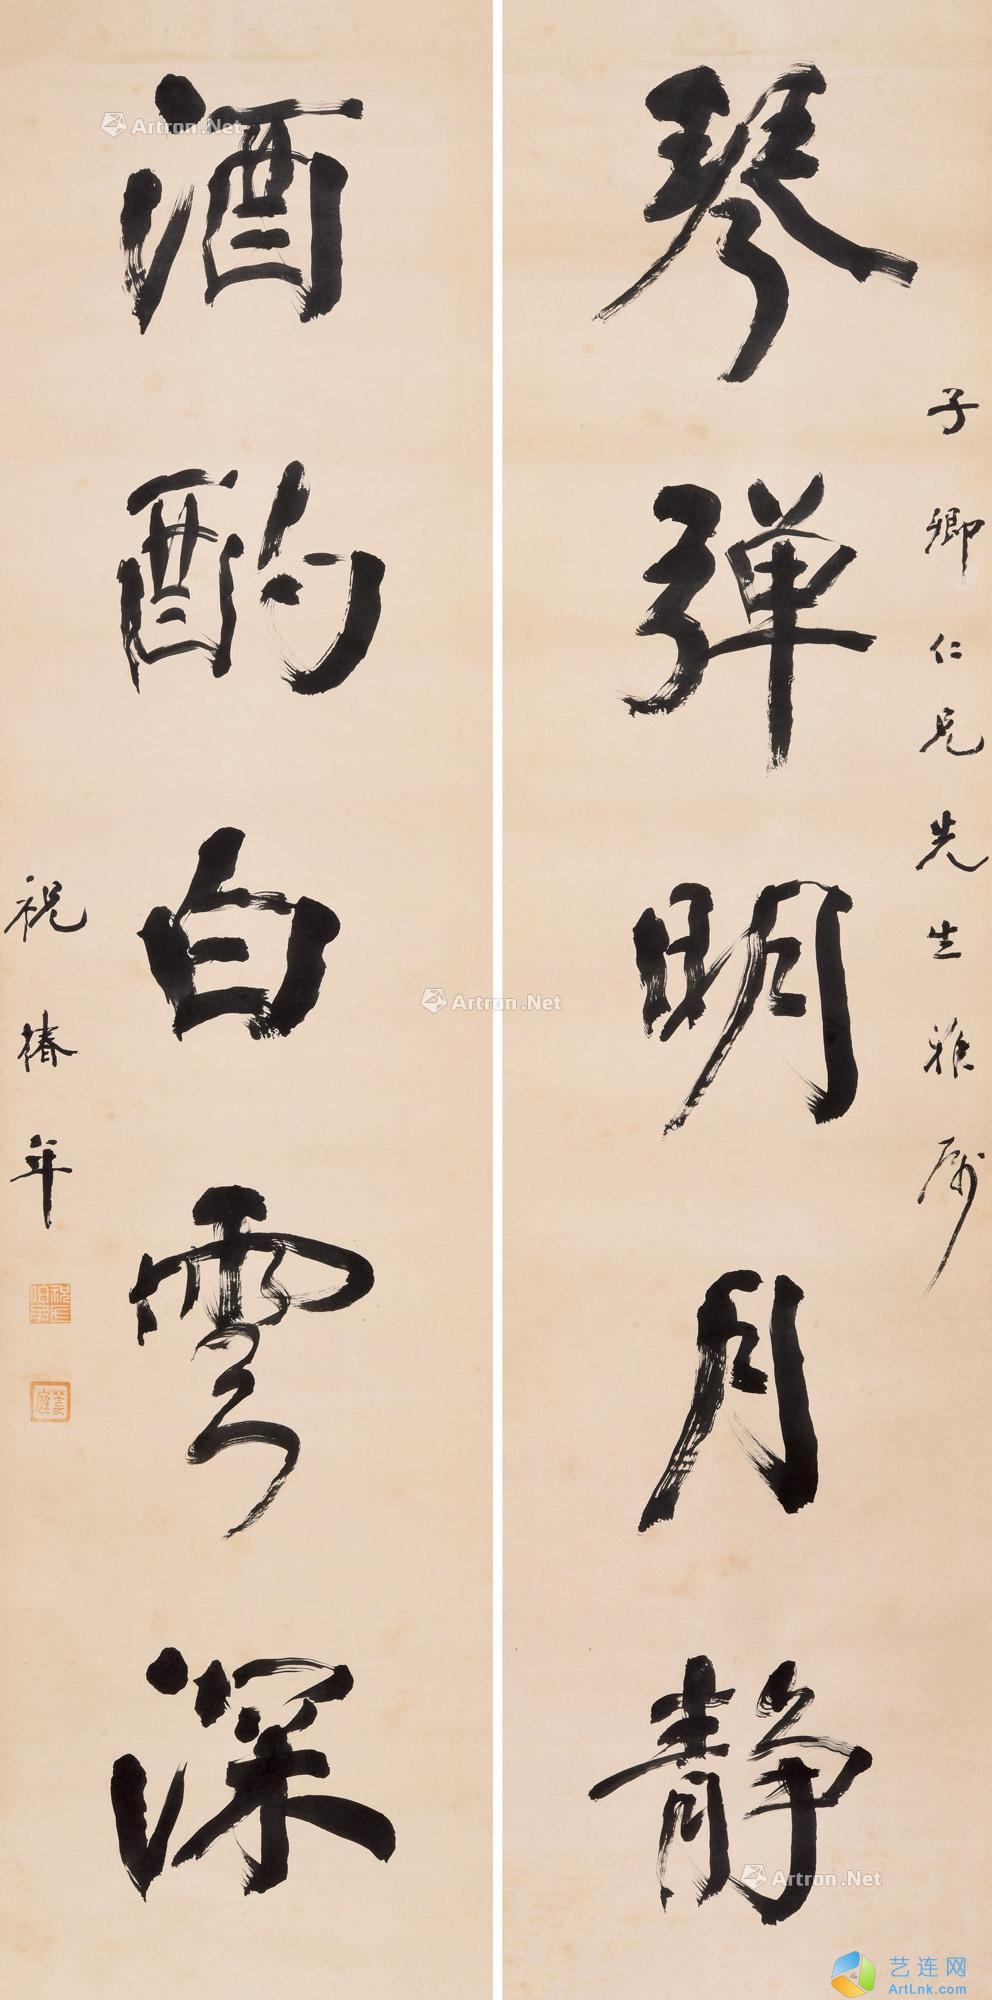 琴弹明月静
子卿仁兄先生雅属
酒酌白雲深
祝椿年
Artron.Net
Artron.Net
Artron.Net
艺连网
ArtLnk.com